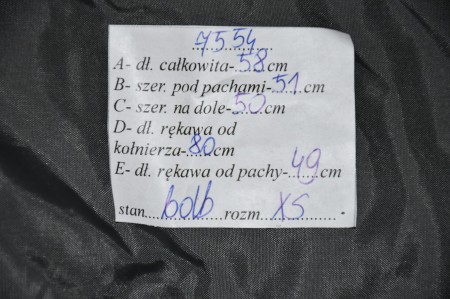 7554
A- dł. całkowita-58cm
B- szer. pod pachami-51cm
C- szer. na dole-50cm
D- dł. rękawa od
kołnierza-80cm
E- dł. rękawa od pachy-49cm
stan bdb rozm. XS -